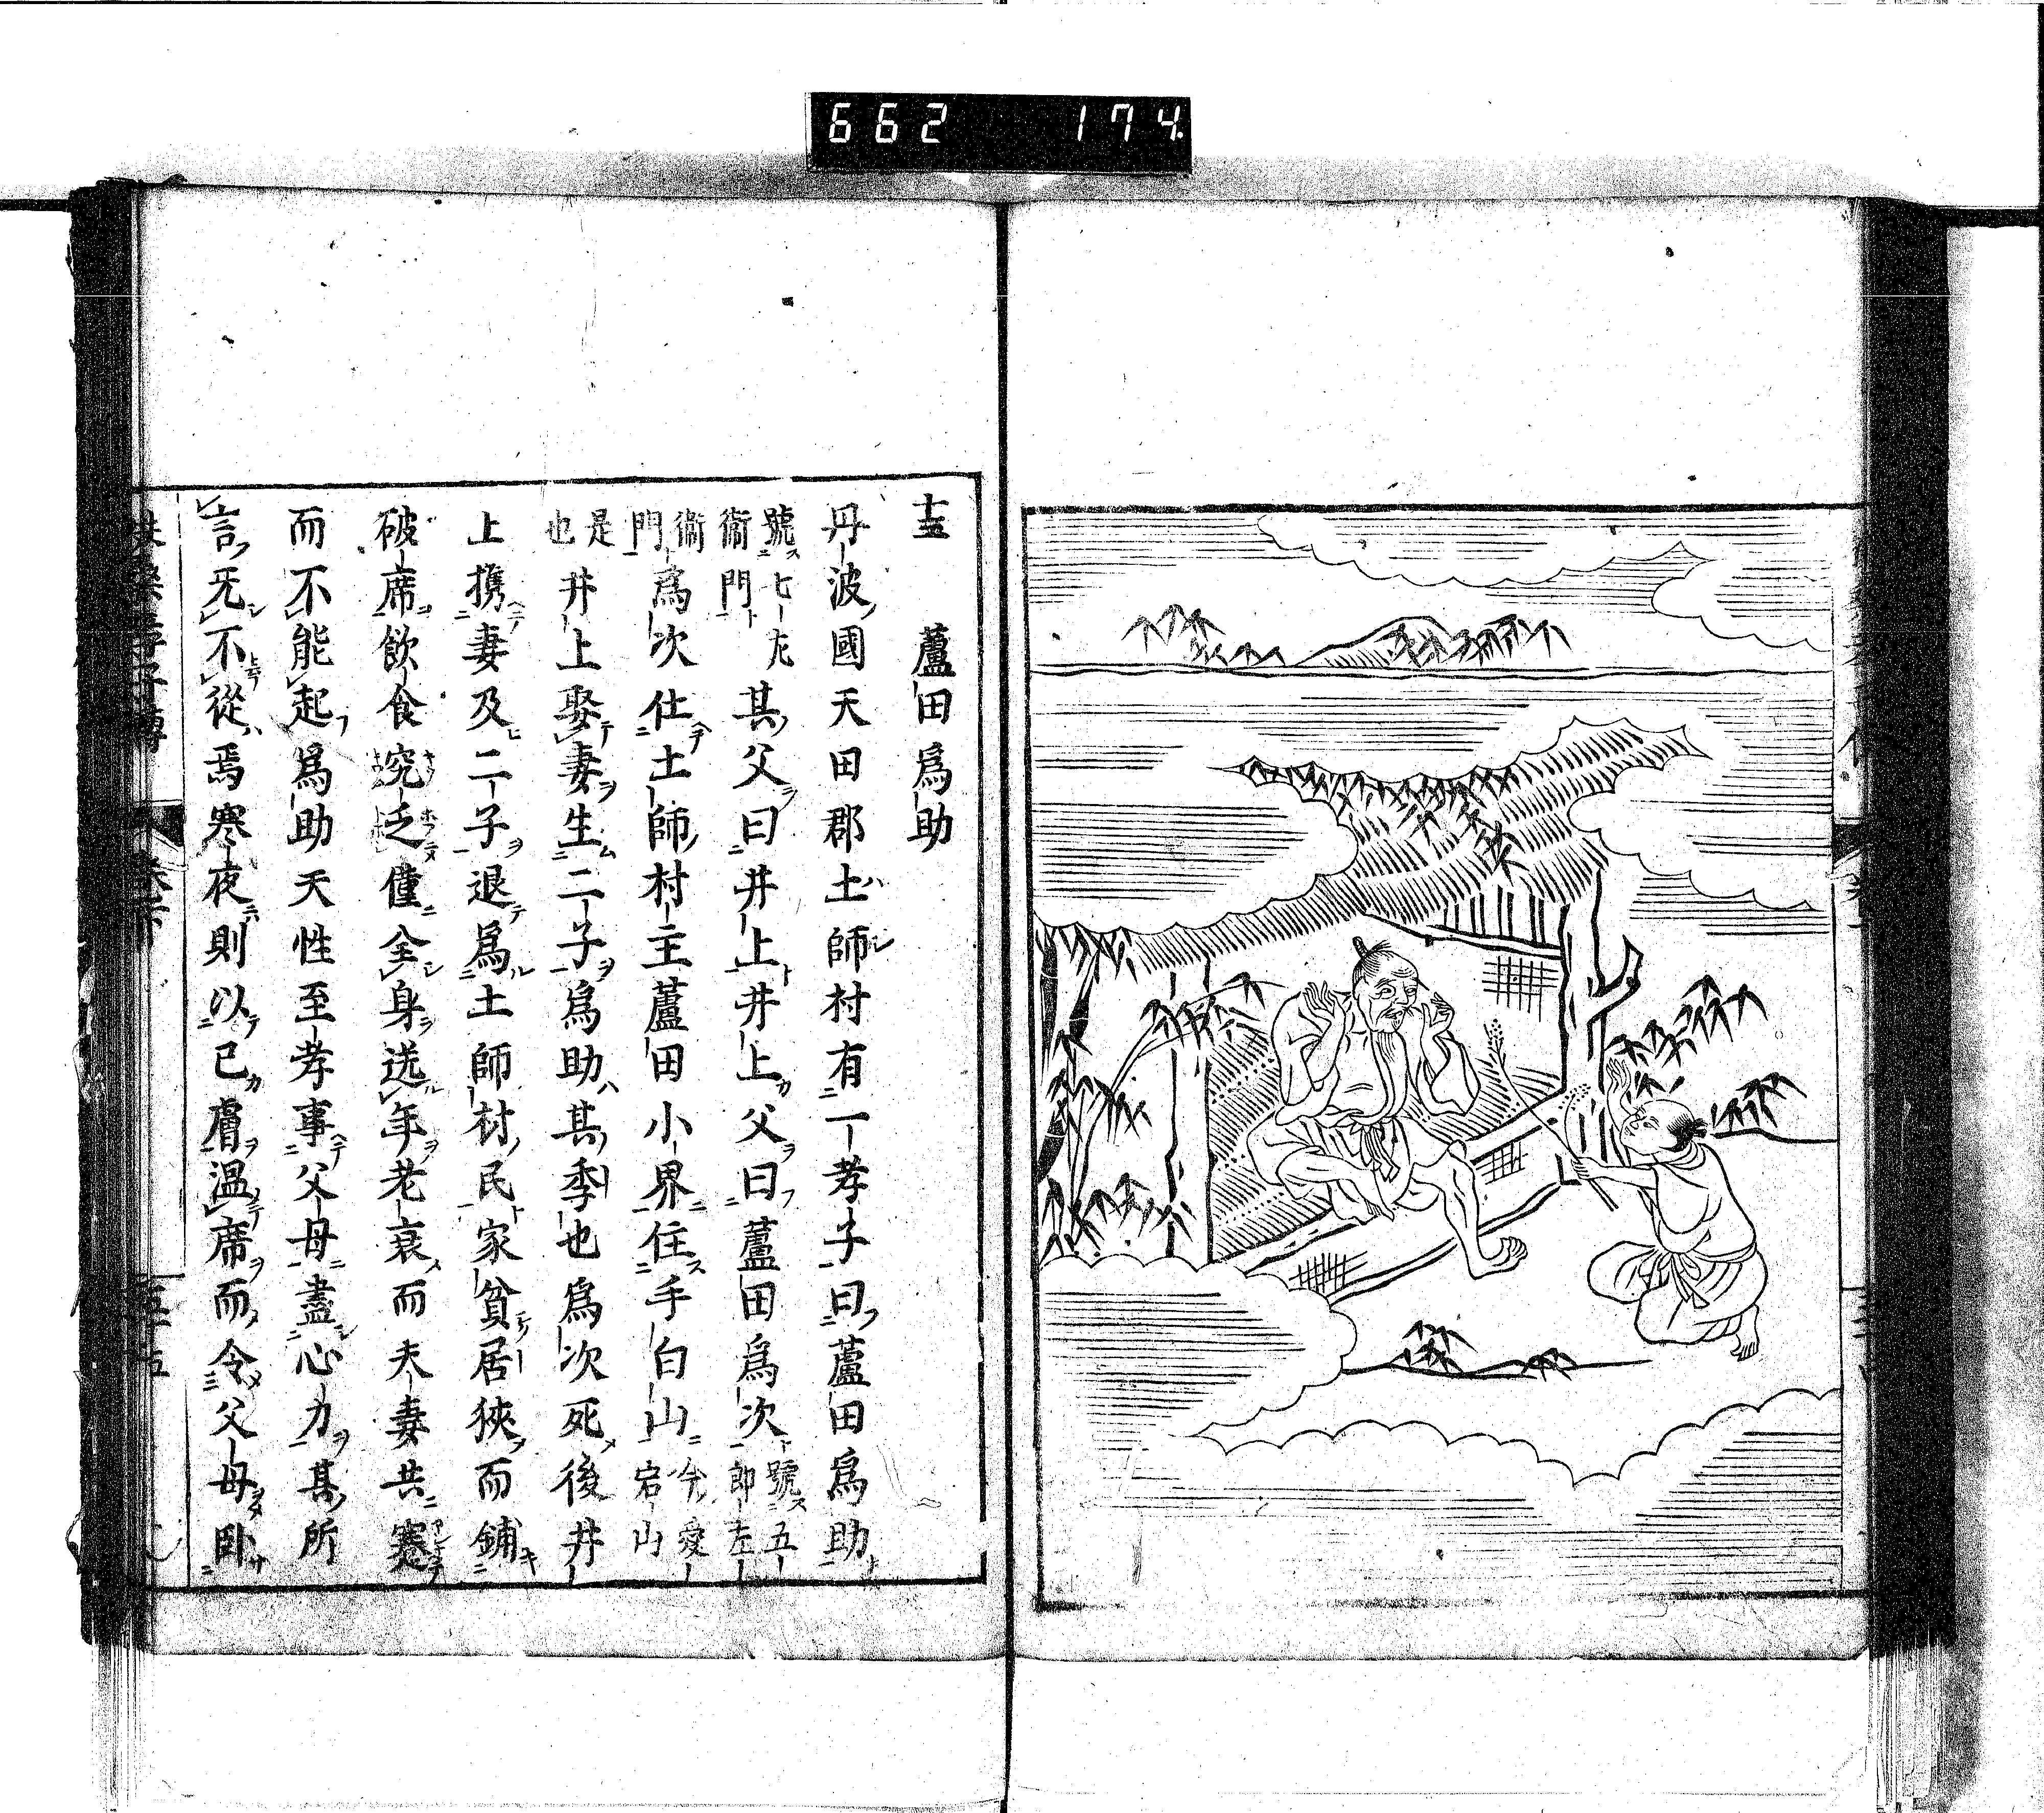 662 174
十五 蘆田爲助
丹波國天田郡土師村有一孝子曰蘆田爲助
號七左衞門其父曰井上井上父曰蘆田爲次號五郎左
衞門爲次仕土師村主蘆田小界住手白山今愛宕山
是也井上娶妻生二子爲助其季也爲次死後井
上携妻及二子退爲土師村民家貧居狹而鋪
破席飲食究乏僅全身送年老衰而夫妻共蹇
而不能起爲助天性至孝事父母盡心力其所
言旡不從焉寒夜則以己膚温席而令父母臥